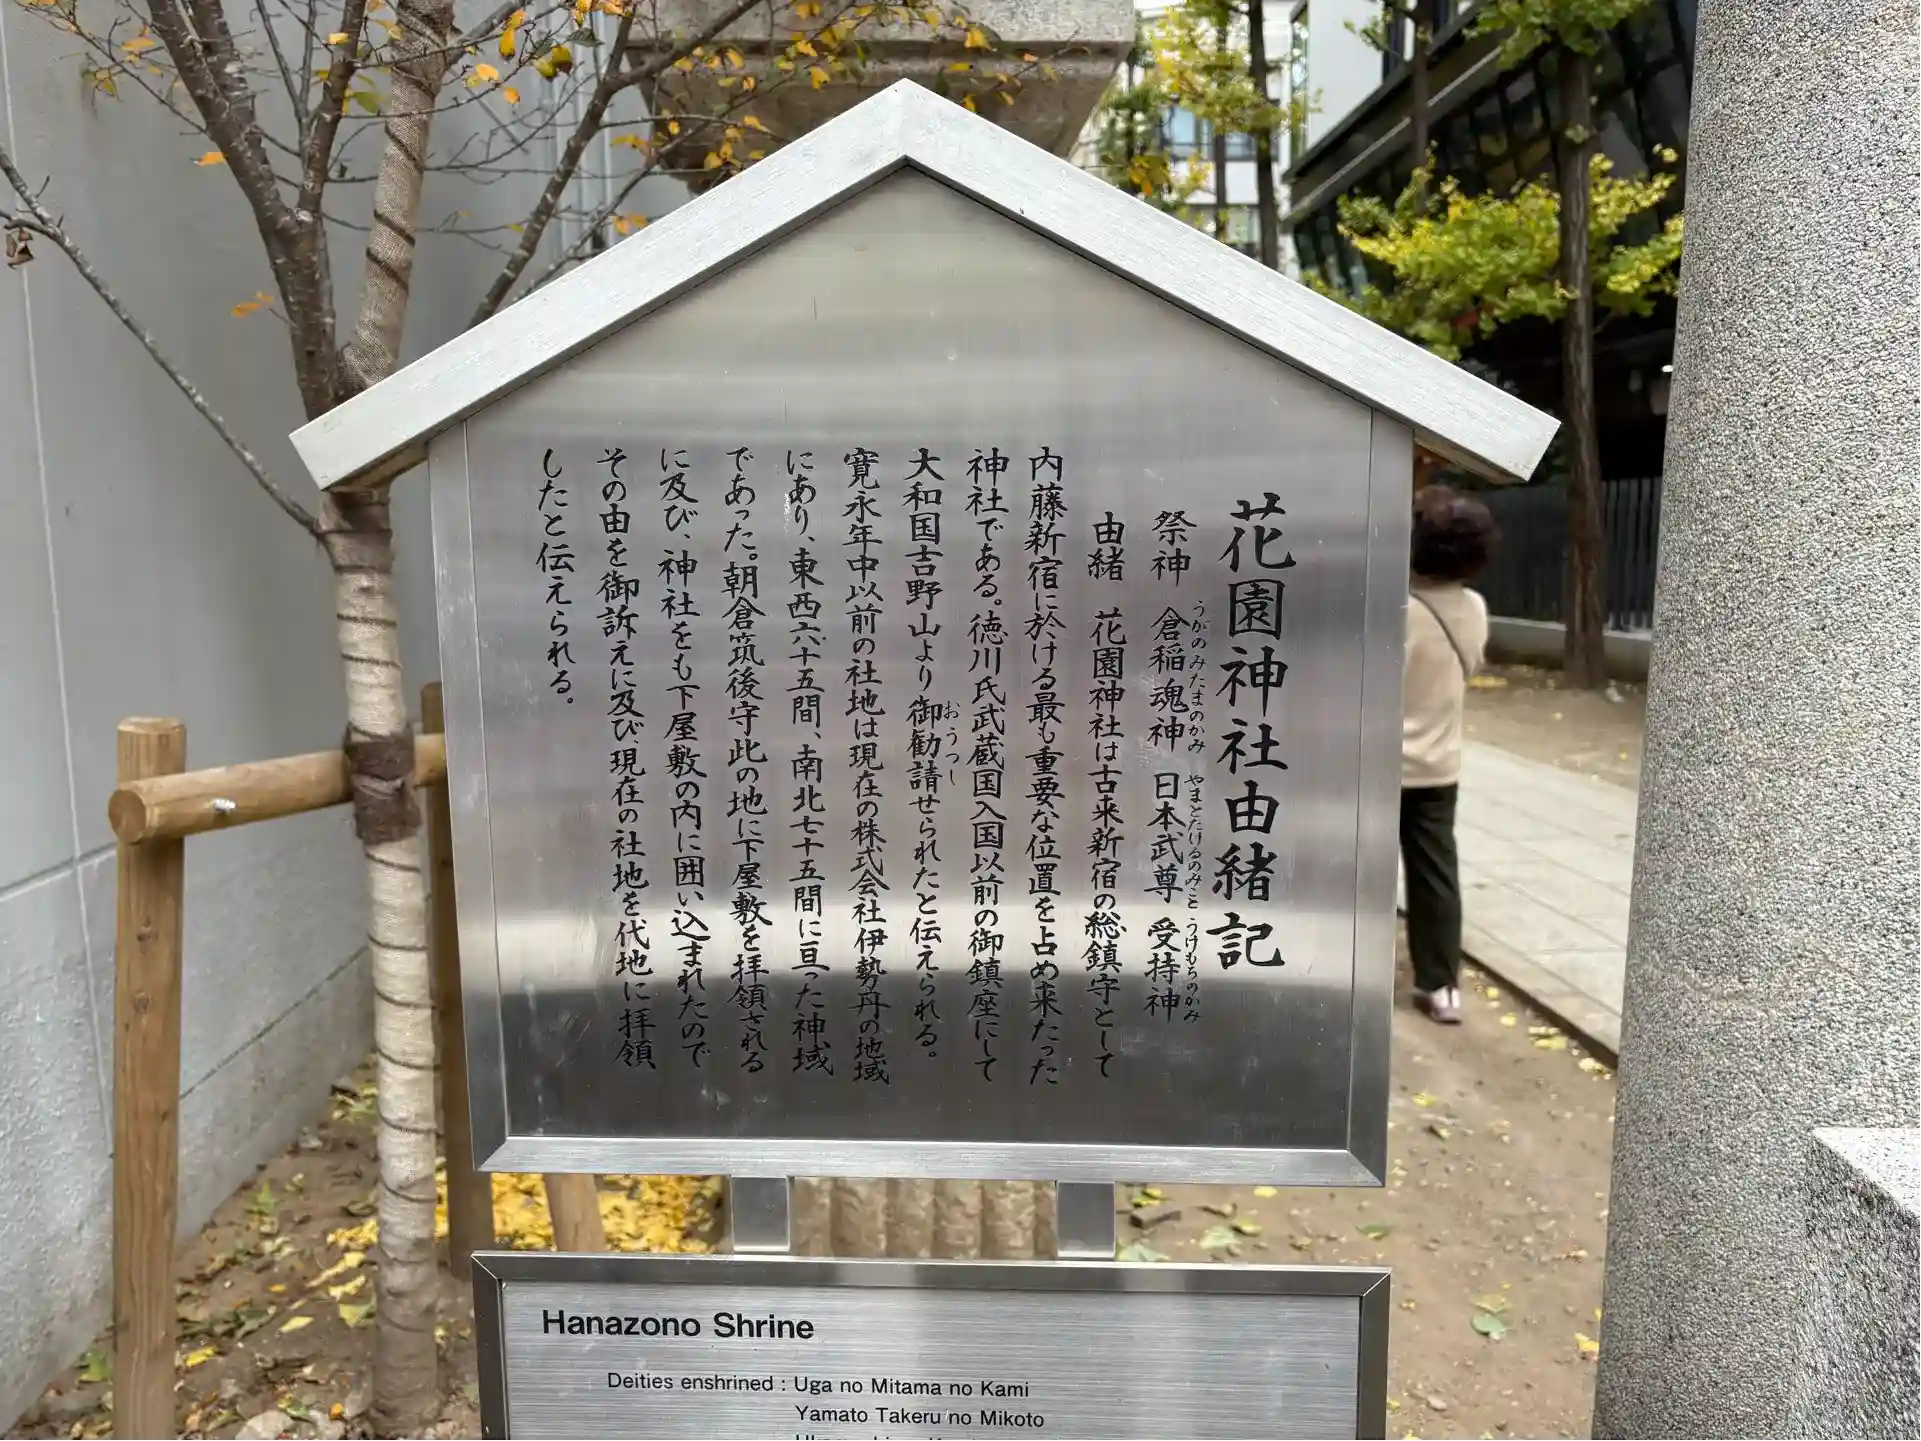 花園神社由緒記
祭神 倉稲魂神 日本武尊 受持神
うがのみたまのかみ やまとたけるのみこと うけもちのかみ
由緒 花園神社は古来新宿の総鎮守として
内藤新宿に於ける最も重要な位置を占め来たった
神社である。徳川氏武蔵国入国以前の御鎮座にして
大和国吉野山より御勧請せられたと伝えられる。
おうつし
寛永年中以前の社地は現在の株式会社伊勢丹の地域
にあり、東西六十五間、南北七十五間に亘った神域
であった。朝倉筑後守此の地に下屋敷を拝領される
に及び、神社をも下屋敷の内に囲い込まれたので
その由を御訴えに及び、現在の社地を代地に拝領
したと伝えられる。
Hanazono Shrine
Deities enshrined : Uga no Mitama no Kami
Yamato Takeru no Mikoto